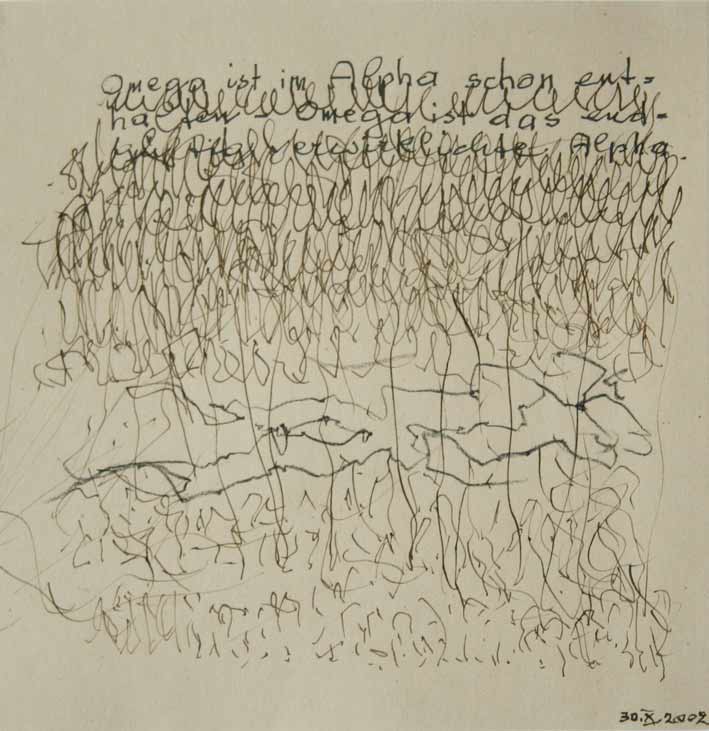 Omega ist im Alpha schon ent=
halten - Omega ist das end-
verwirklichte Alpha.
30.X.2002